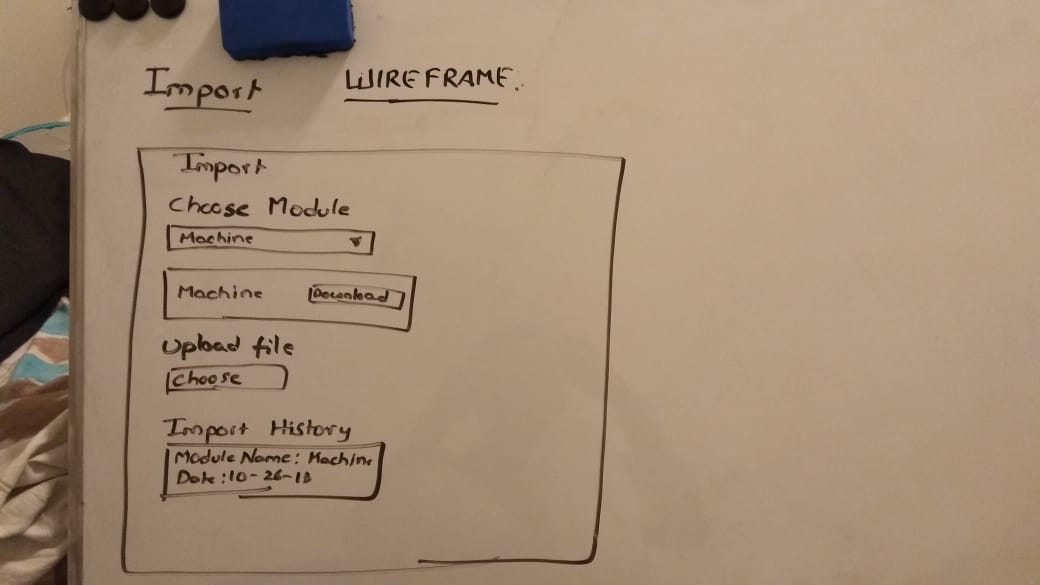 Import WIREFRAME.
Import
Choose Module
Machine
Machine Download
Upload file
Choose
Import History
Module Name: Machine
Date: 10-26-18